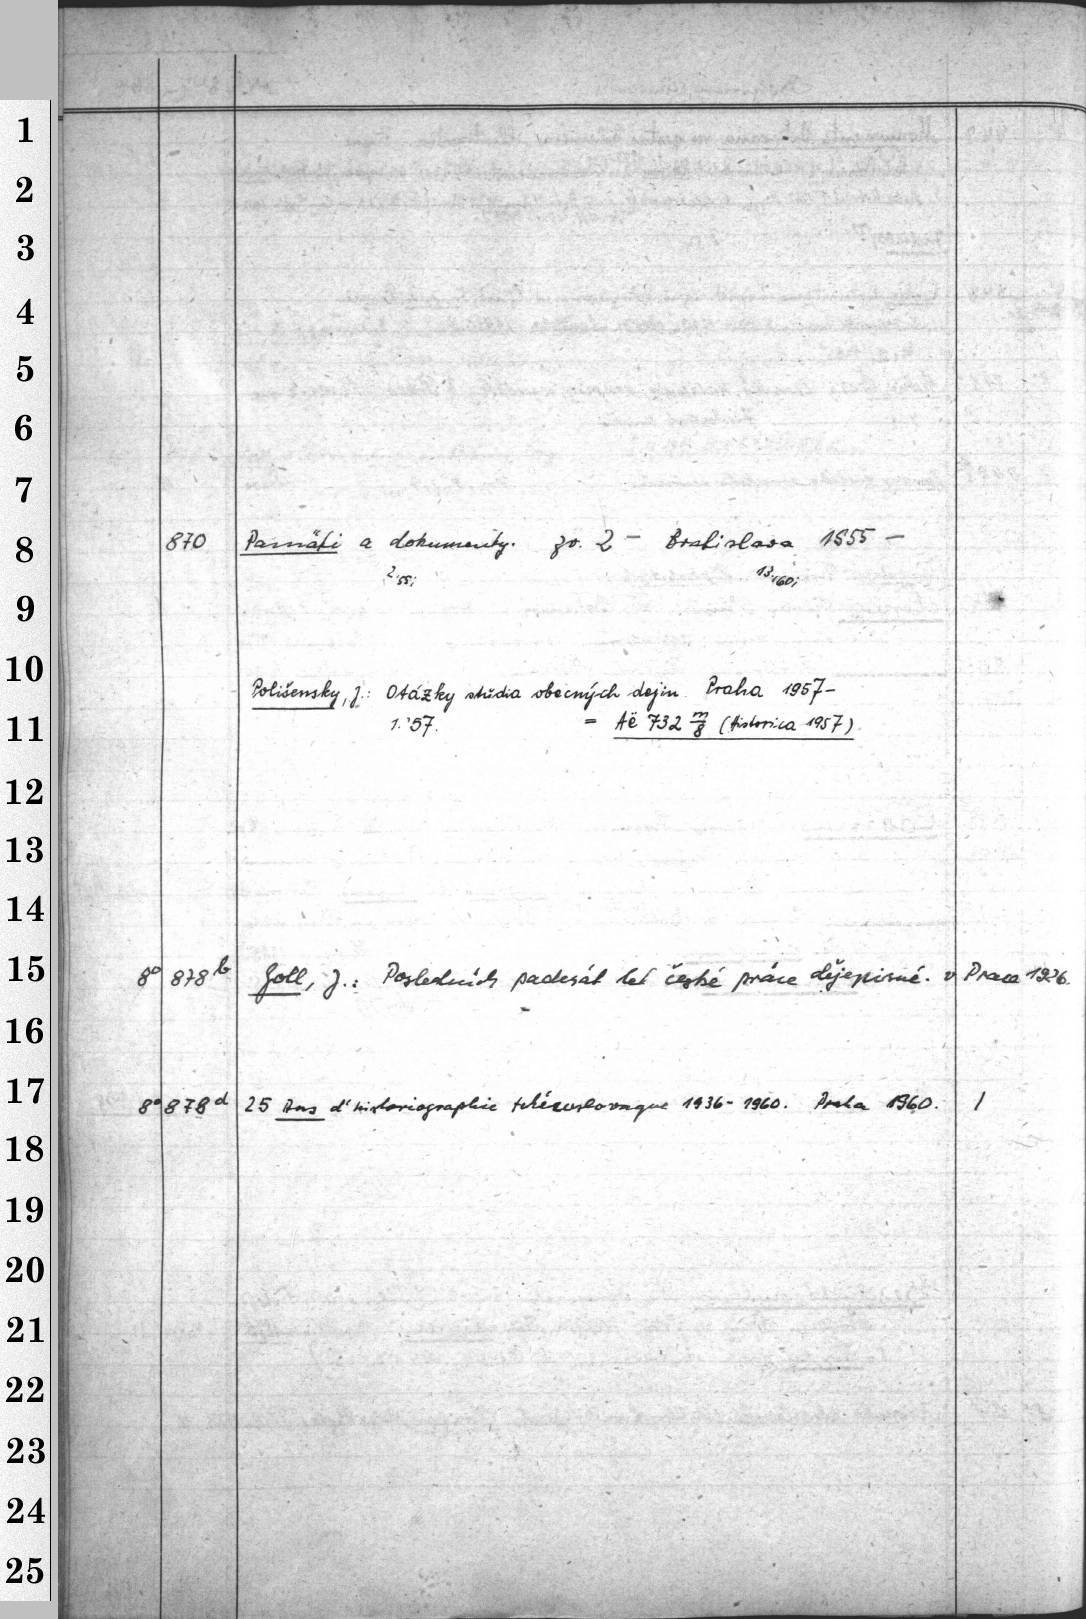 1
2
3
4
5
6
7
8 870 Pamäti a dokumenty. zv. 2 – Bratislava 1955 –
2'55; 13'60;
9
10 Polišensky, J.: Otázky studia obecných dějin Praha 1957–
11 1.'57. = Aë 732 m/8 (Historica 1957)
12
13
14
15 8° 878 b Goll, J.: Posledních padesát let české práce dějepisné. v Praze 1926.
16
17 8° 878 d 25 Ans d'historiographie tchécoslovaque 1936–1960. Praha 1960. 1
18
19
20
21
22
23
24
25